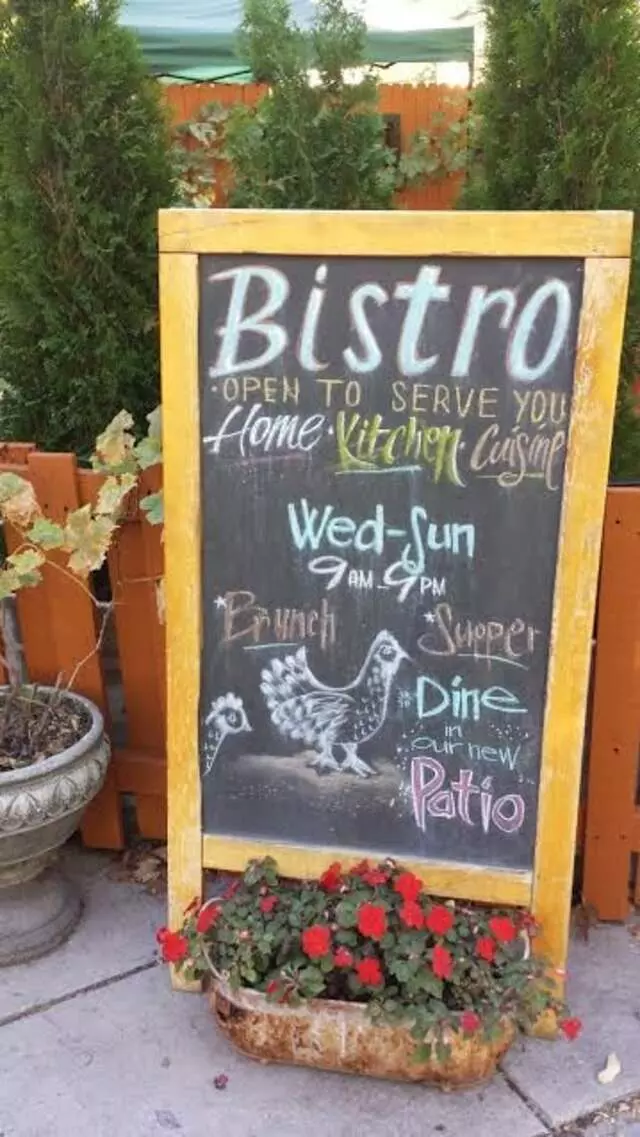 Bistro
·OPEN TO SERVE YOU
Home·Kitchen·Cuisine
Wed-Sun
9AM-9PM
*Brunch *Supper
*Dine
in
our new
Patio